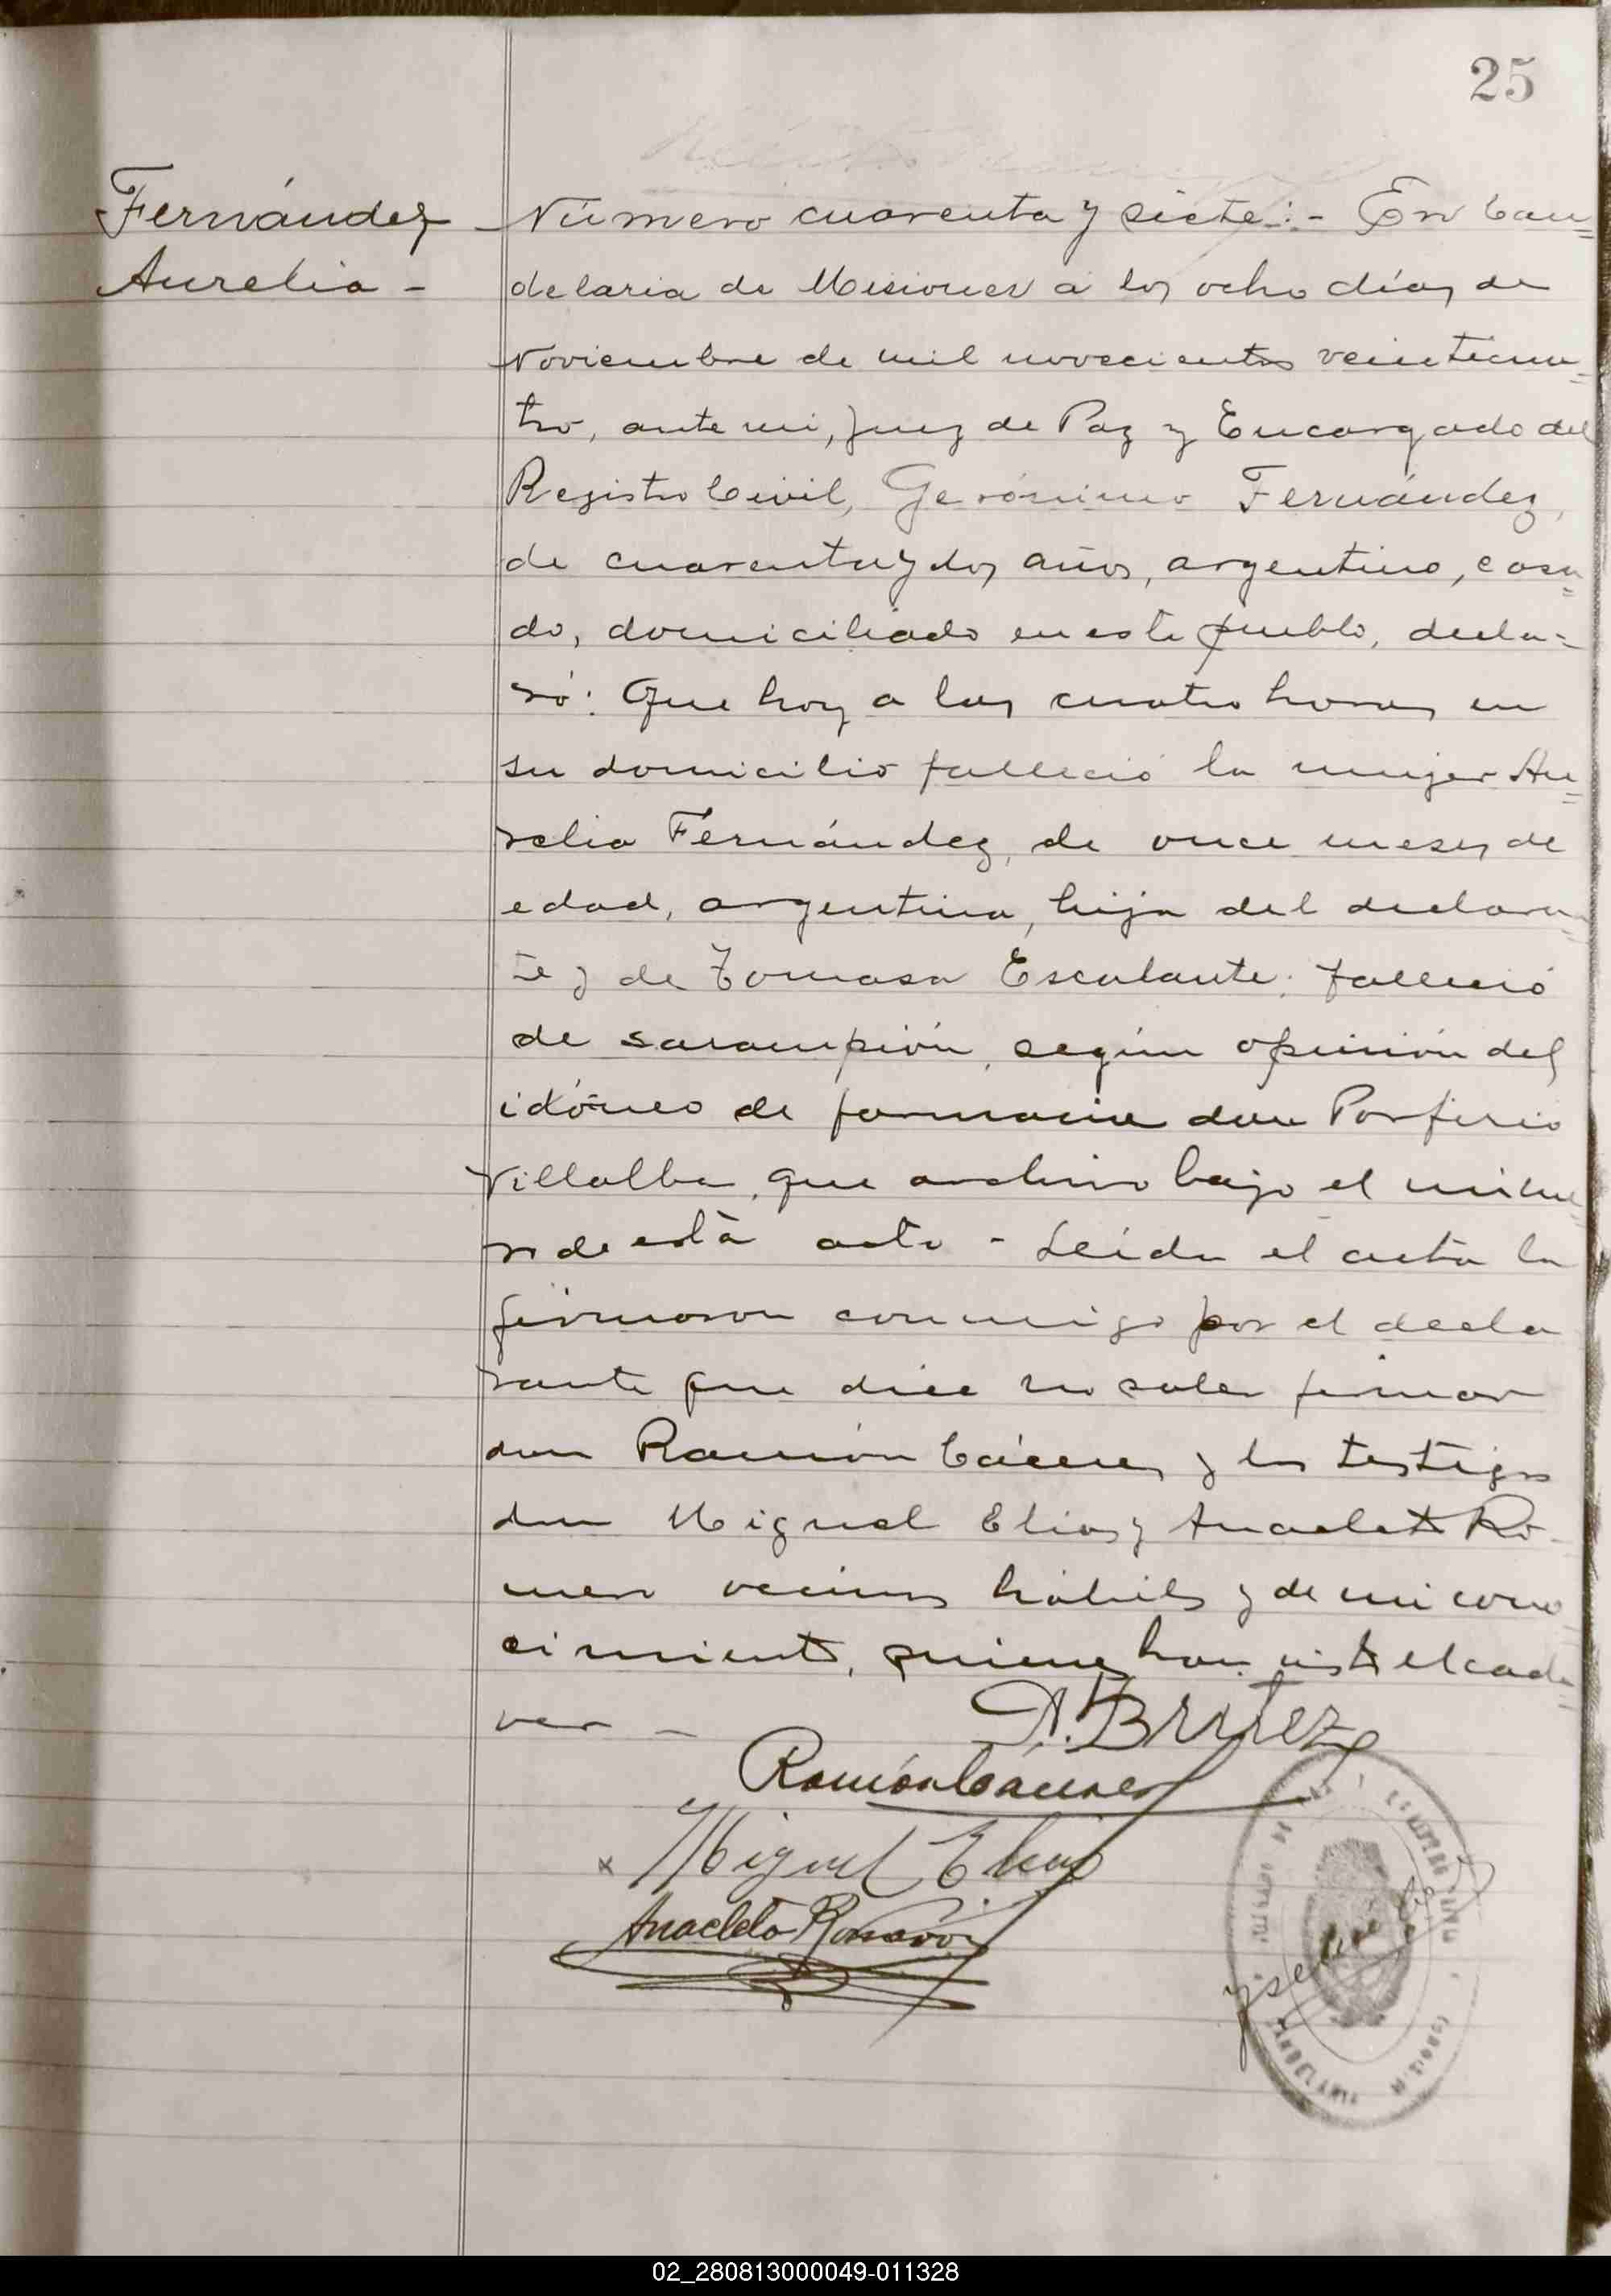 25
Fernández
Aurelia -
Número cuarenta y siete:- En Can=
delaria de Misiones a los ocho días de
Noviembre de mil novecientos veinticua=
tro, ante mi, Juez de Paz y Encargado del
Registro Civil, Gerónimo Fernández,
de cuarenta y dos años, argentino, casa=
do, domiciliado en este pueblo, decla=
ró: Que hoy a las cuatro horas en
su domicilio falleció la mujer Au=
relia Fernández, de once meses de
edad, argentina, hija del declaran=
te y de Tomasa Escalante; falleció
de sarampión, según opinión del
idóneo de farmacia don Porfirio
Villalba, que archivo bajo el núme=
ro de esta acta - Leida el acta la
firmaron conmigo por el decla
rante que dice no saber firmar
don Ramón Cáceres y los testigos
don Miguel Elias y Anacleto Ro-
mero vecinos hábiles y de mi cono
cimiento, quienes han visto el cadá=
ver -
A. Britez
Ramón Cáceres
x Miguel Elias
Anacleto Romero
02_280813000049-011328